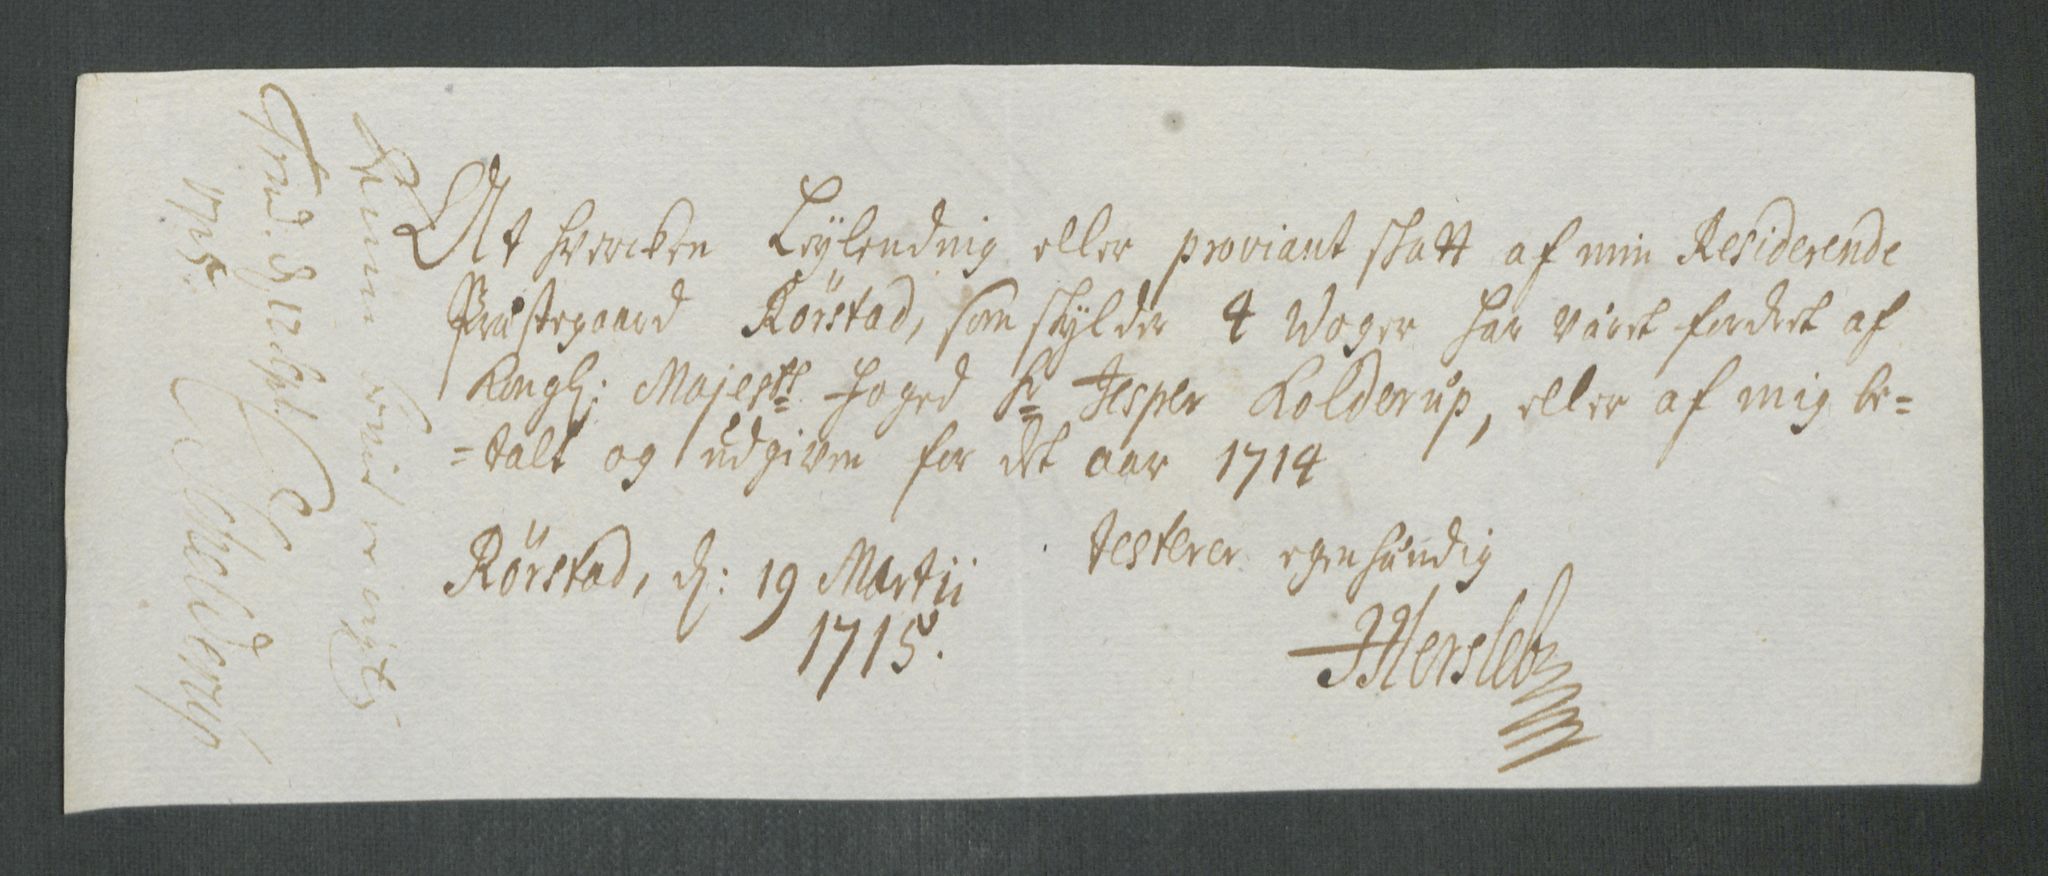 At hvercken Leÿlending eller proviant skatt af min Residerende
Præstegaard Rörstad, som skÿlder 4 Woger har været fordret af
Kongl: Majestts foged Sr Jesper Kolderup, eller af mig be=
=talt og udgiven for det aar 1714
Rörstad, d: 19 Martii
1715.
testerer egenhændig
JHersleb
1715.